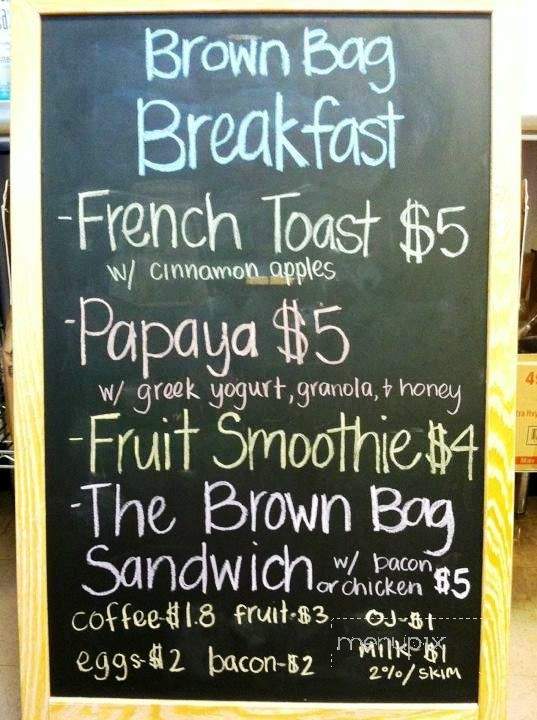 Brown Bag
Breakfast
-French Toast $5
w/ cinnamon apples
-Papaya $5
w/ greek yogurt, granola, & honey
-Fruit Smoothie $4
-The Brown Bag
Sandwich w/ bacon or chicken $5
coffee-$1.8 fruit-$3 OJ-$1
eggs-$2 bacon-$2 Milk-$1
2%/skim
menupix